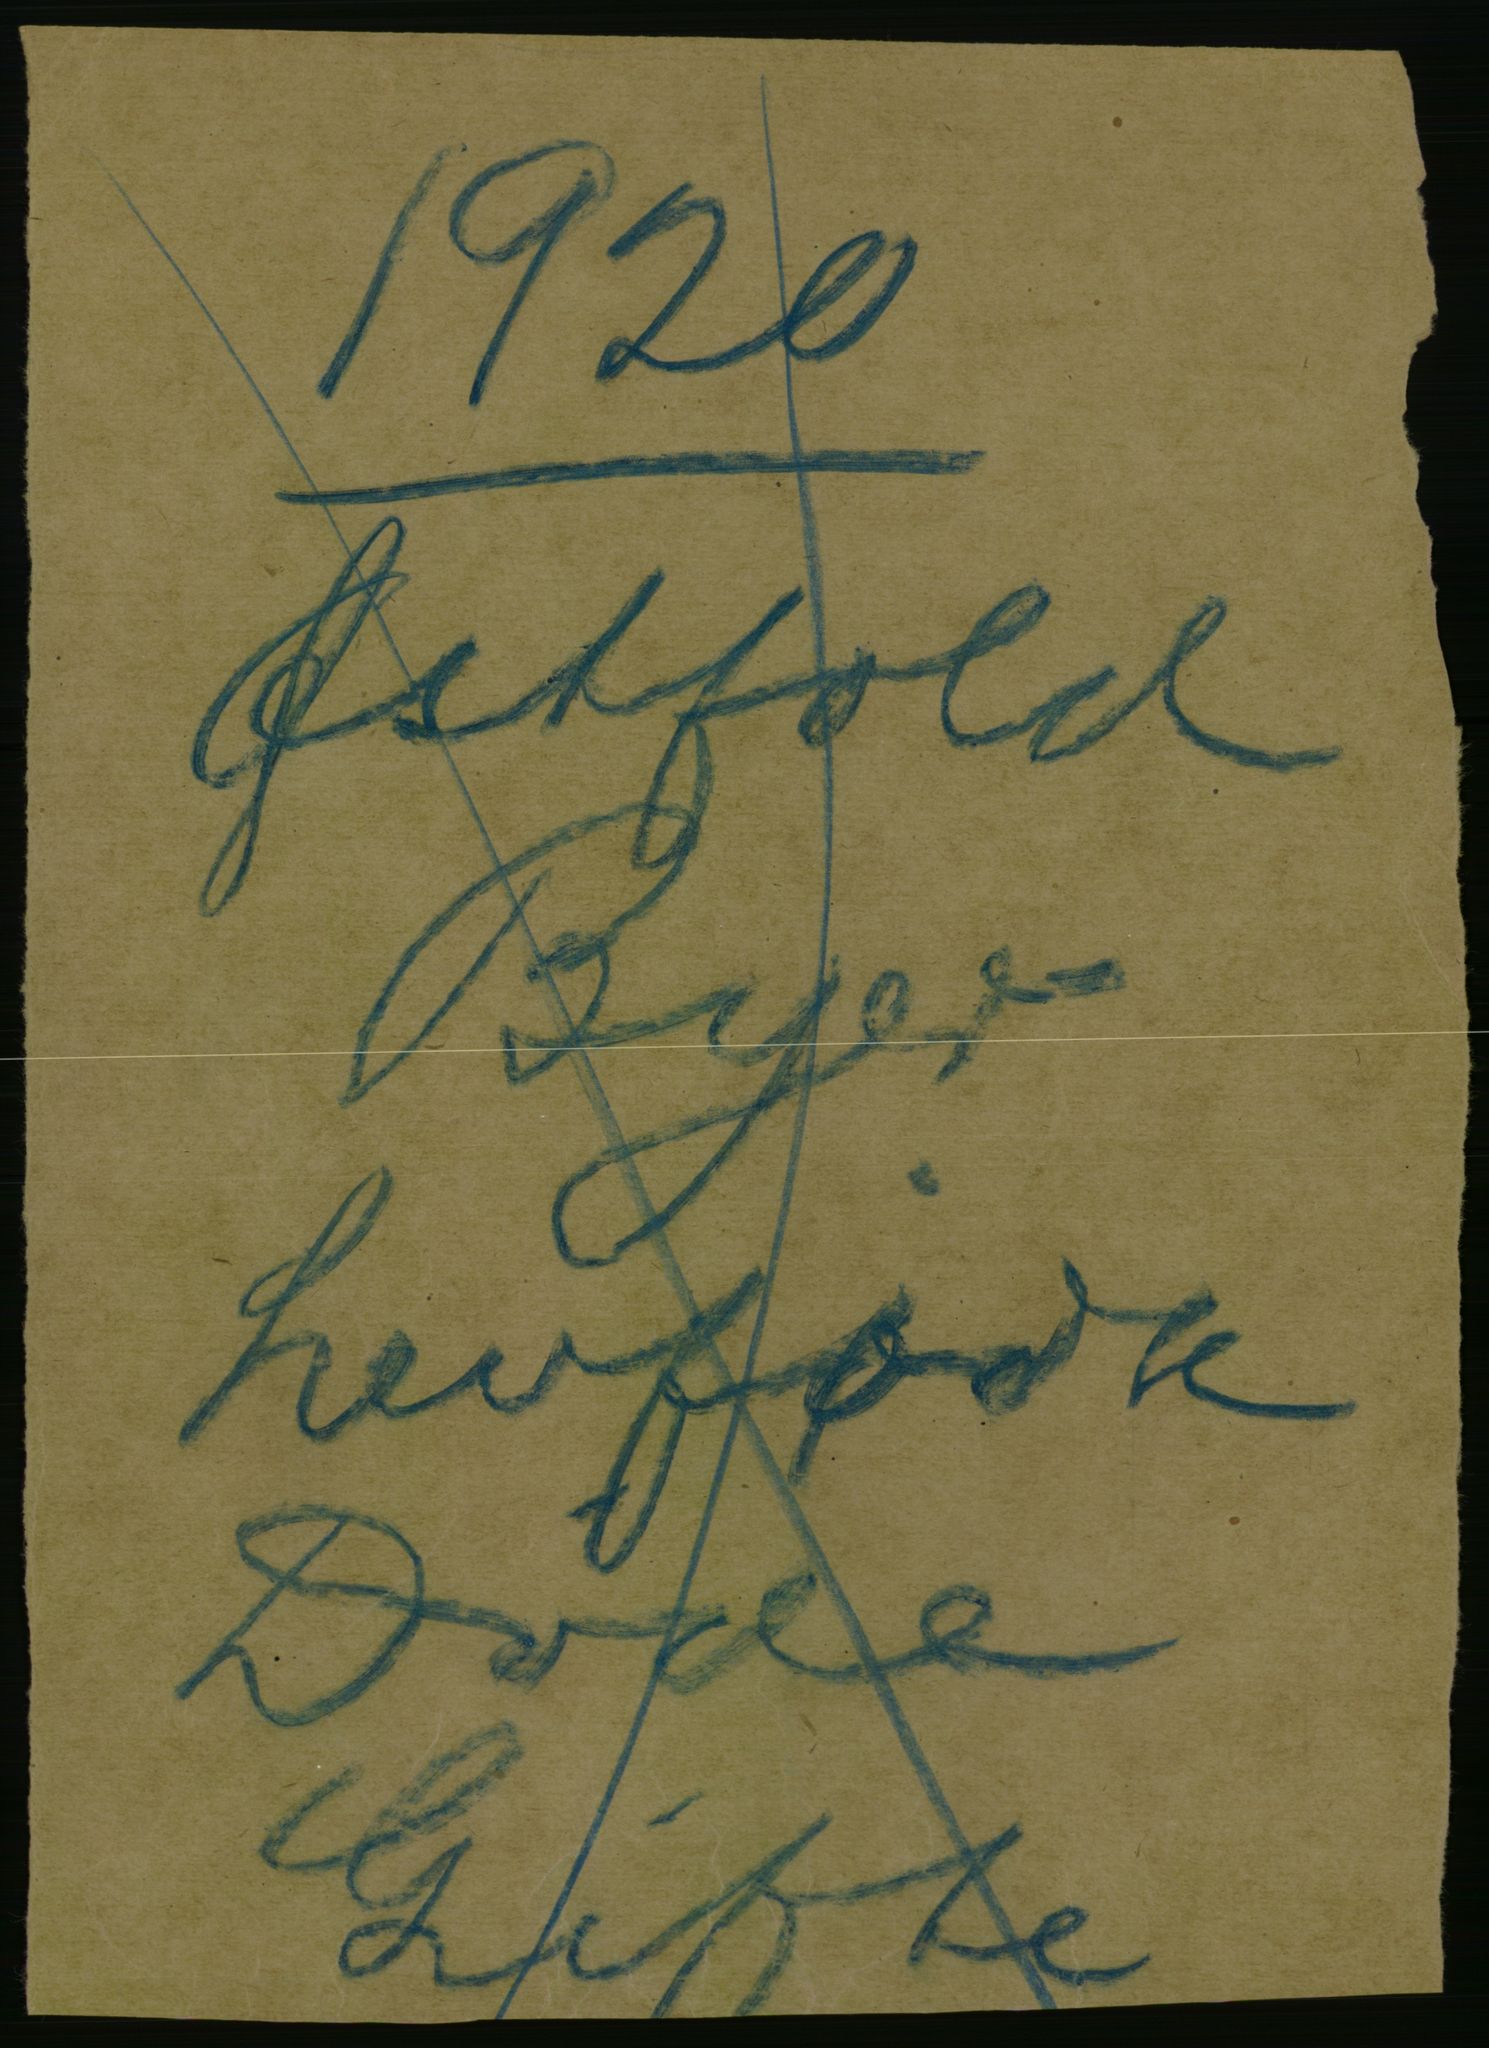 1920
Østfold
Byer
Levfødte
Døde
Gifte